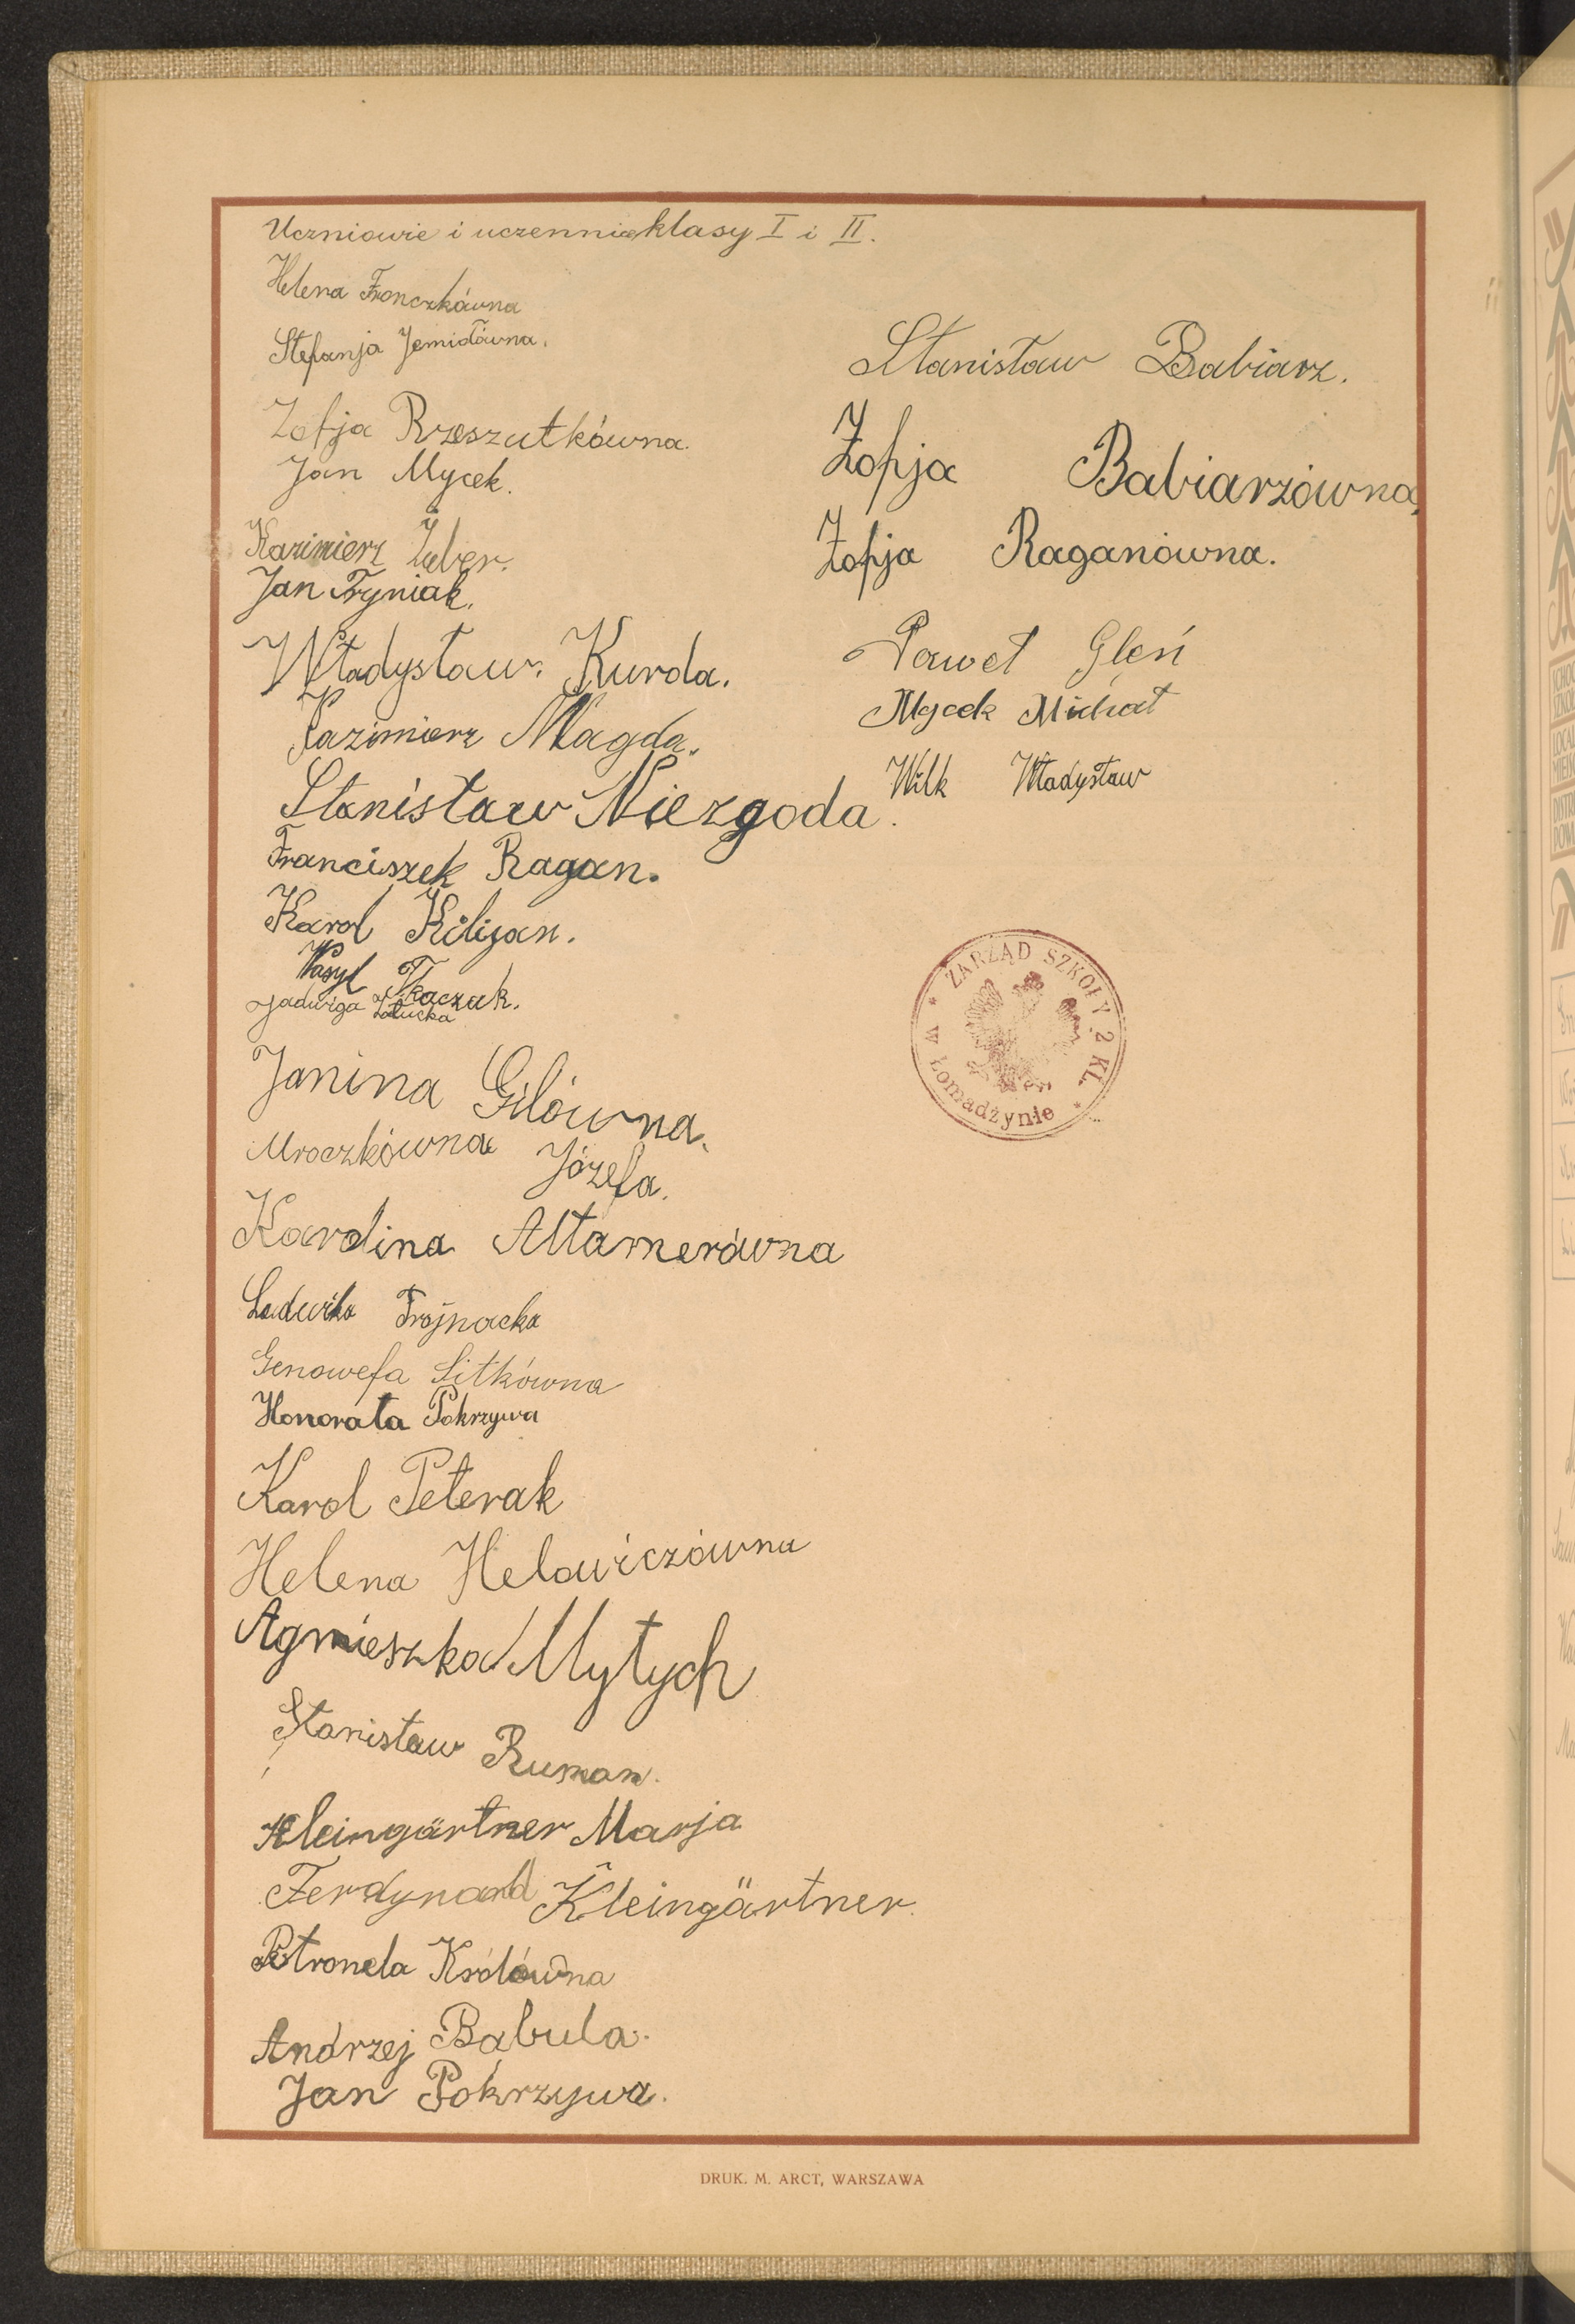 Uczniowie i uczennice klasy I i II.
Helena Fronczkówna
Stefanja Jemiołówna.
Zofja Rzeszutkówna.
Jan Mycek.
Kazimierz Zuber.
Jan Tryniak.
Władysław Kurda.
Kazimierz Magda.
Stanisław Niezgoda.
Franciszek Ragan.
Karol Kilijan.
Wasyl Tkaczuk.
Jadwiga Załucka
Janina Gilówna.
Mroczkówna Józefa.
Karolina Altamerówna
Ludwika Trojnacka
Genowefa Sitkówna
Honorata Pokrzywa
Karol Peterak
Helena Helowiczówna
Agnieszka Mytych
Stanisław Ruman.
Kleingärtner Marja
Ferdynand Kleingärtner.
Petronela Królówna
Andrzej Babula.
Jan Pokrzywa.
Stanisław Babiarz.
Zofja Babiarzówna,
Zofja Raganówna.
Paweł Gleń
Mycek Michał
Wilk Władysław
* ZARZĄD SZKOŁY 2 KL. *
w Łomadżynie
DRUK. M. ARCT, WARSZAWA